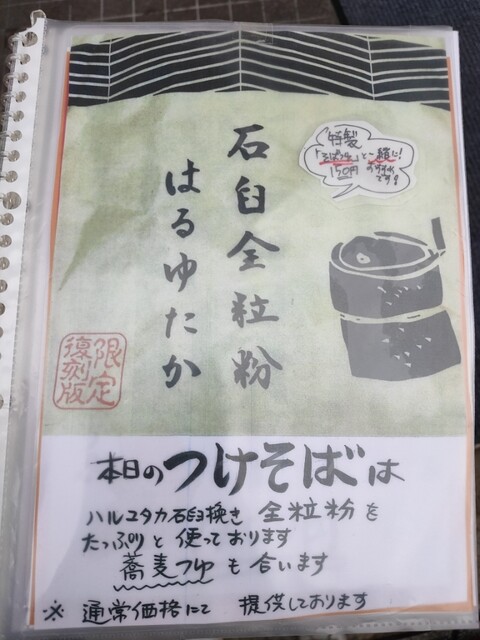 石臼全粒粉
はるゆたか
特製
「そばつゆ」と一緒に!
150円 おすすめ
です!
限定
復刻版
本日のつけそばは
ハルユタカ石臼挽き 全粒粉を
たっぷりと使っております
蕎麦つゆも合います
※ 通常価格にて 提供しております